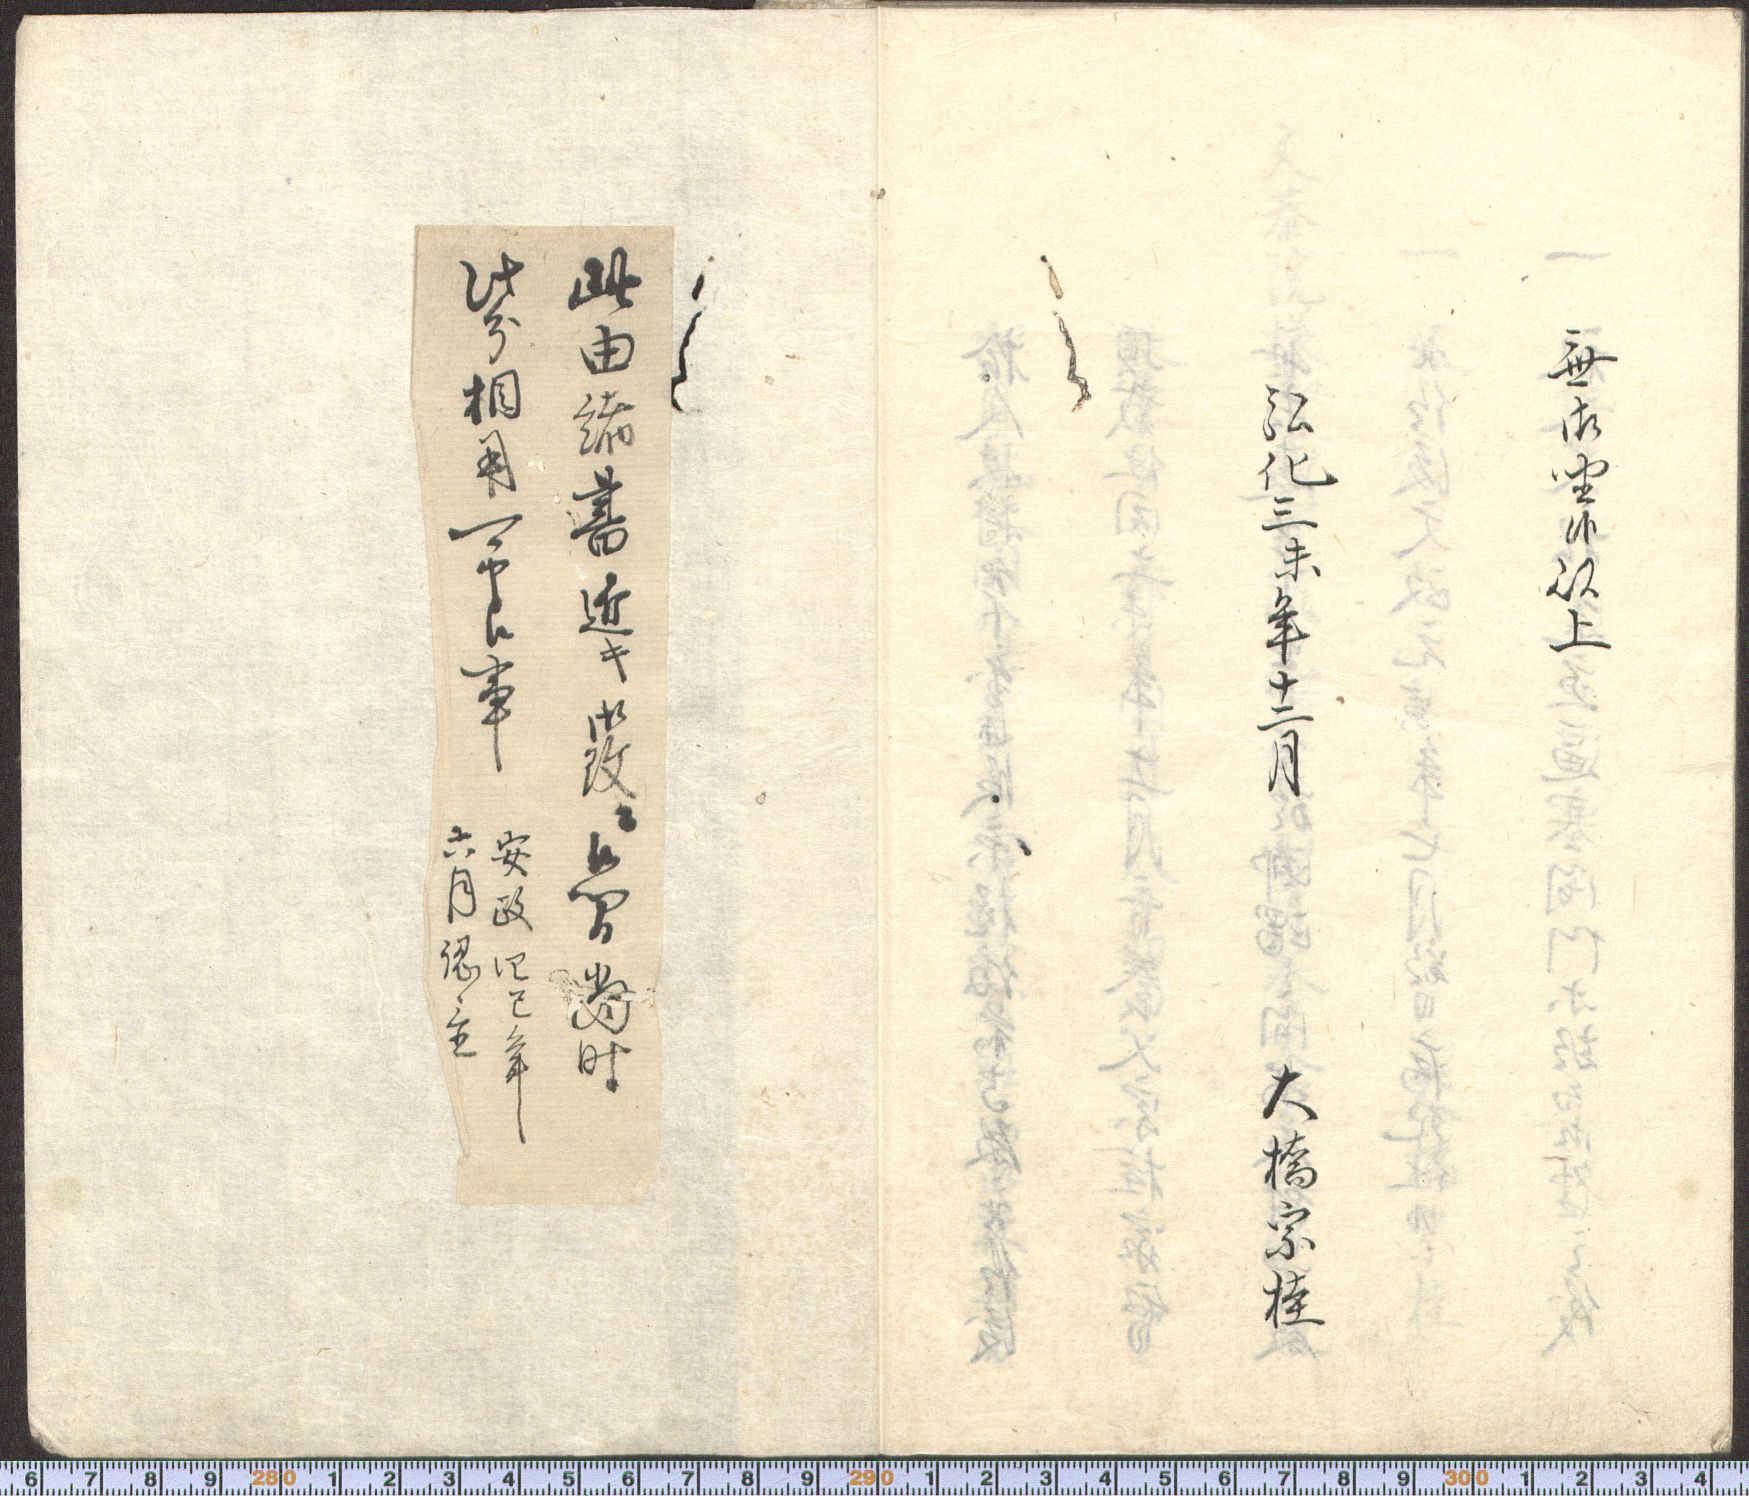 無御座候以上
弘化三未年十二月
大橋宗桂
此由緒書近キ御改ニ候間当時
此分相用可申候事
安政四巳年
六月認之
6 7 8 9 280 1 2 3 4 5 6 7 8 9 290 1 2 3 4 5 6 7 8 9 300 1 2 3 4